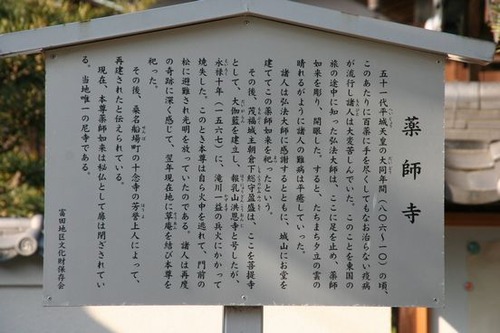 薬師寺
五十一代平城天皇の大同年間（八〇六〜一〇）の頃、
このあたりに百薬に手を尽くしてもなお治らない疫病
が流行し諸人は大変苦しんでいた。このことを東国の
旅の途中に知った弘法大師は、ここに足を止め、薬師
如来を彫り、開眼した。すると、たちまち夕立の雲の
晴れるがように諸人の難病は平癒していった。
諸人は弘法大師に感謝するとともに、城山にお堂を
建ててこの薬師如来を祀ったという。
その後、茂福城主朝倉下総守盈盛は、ここを菩提寺
として、大伽藍を建立し、報乳山洪恩寺と号したが、
永禄十年（一五六七）に、滝川一益の兵火にかかって
焼失した。このとき本尊は自ら火中を逃れて、門前の
松に避難され光明を放っていたのである。諸人は再度
の奇跡に深く感じて、翌年現在地に草庵を結び本尊を
祀った。
その後、桑名船場町の十念寺の芳誉上人によって、
再建されたと伝えられている。
現在、本尊薬師如来は秘仏として扉は閉ざされてい
る。当地唯一の尼寺である。
富田地区文化財保存会